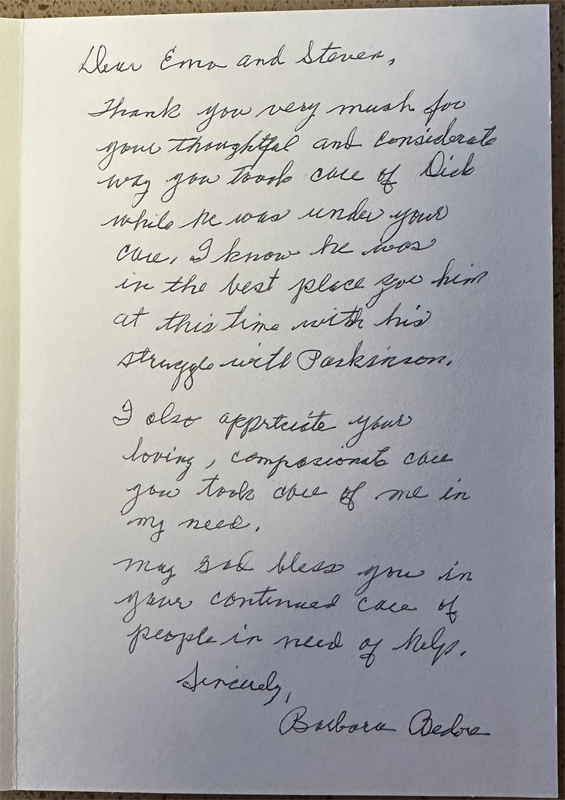 Dear Ema and Steven,
Thank you very much for
your thoughtful and considerate
way you took care of Dick
while he was under your
care. I know he was
in the best place for him
at this time with his
struggle with Parkinson.
I also apprtciate your
loving, compasionate care
you took care of me in
my need.
May God bless you in
your continued care of
people in need of help.
Sincerely,
Barbara Bedore